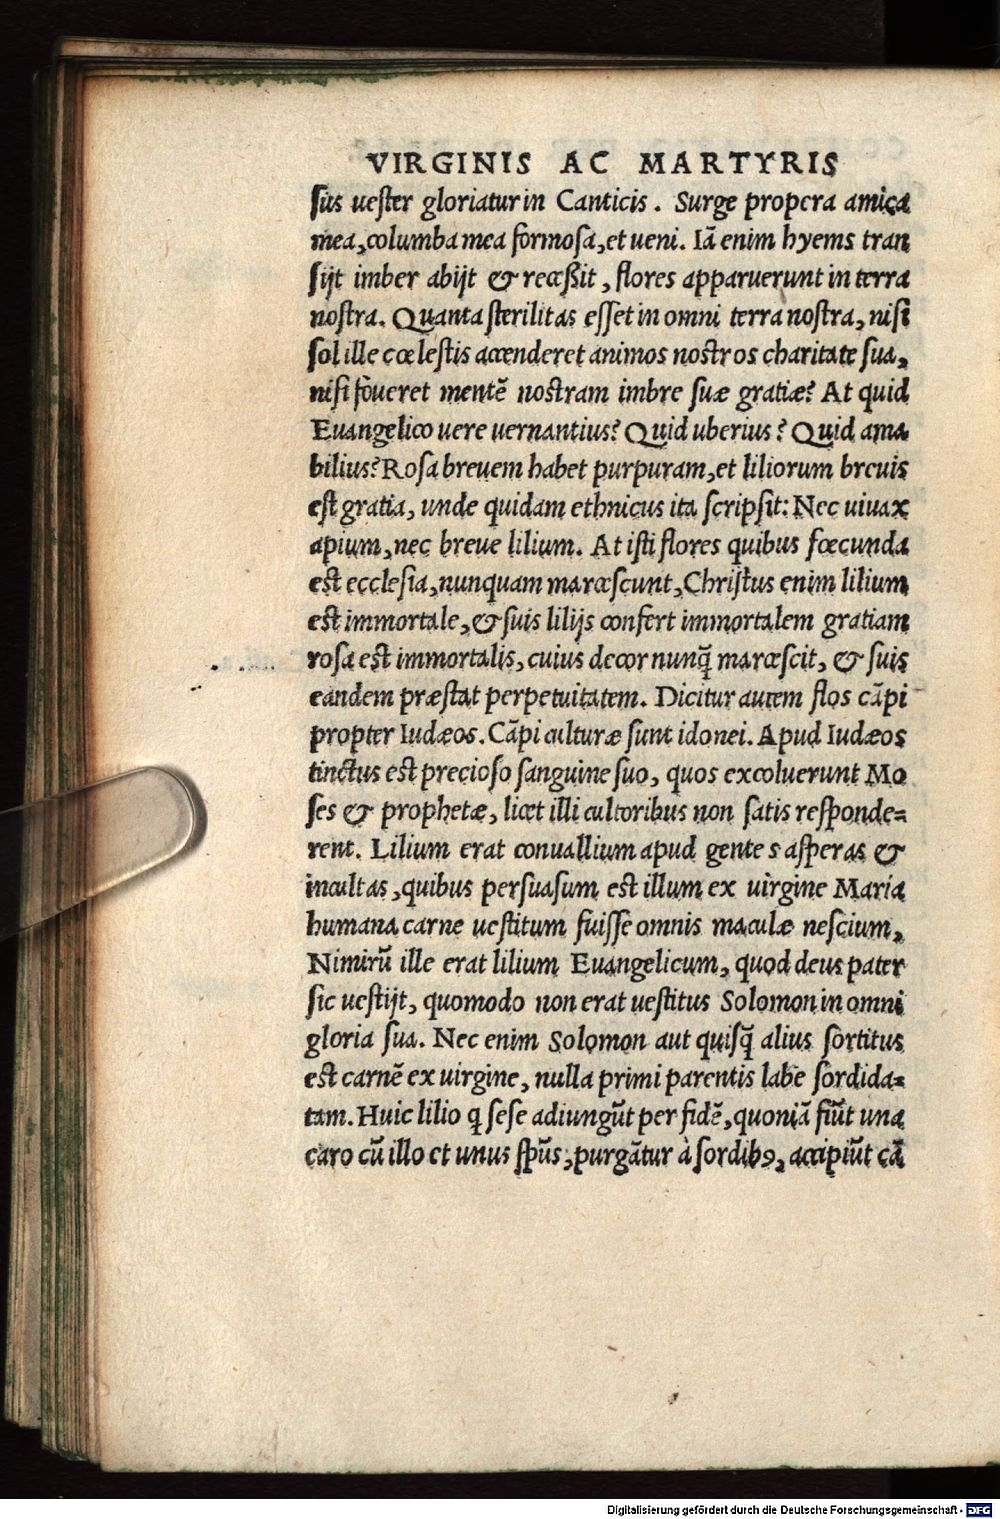 VIRGINIS AC MARTYRIS
sus uester gloriatur in Canticis. Surge propera amica
mea, columba mea formosa, et ueni. Iã enim hyems tran
sijt imber abijt & recessit, flores apparuerunt in terra
nostra. Quanta sterilitas esset in omni terra nostra, nisi
sol ille cœlestis accenderet animos nostros charitate sua,
nisi foueret mentẽ nostram imbre suæ gratiæ? At quid
Euangelico uere uernantius? Quid uberius? Quid ama
bilius? Rosa breuem habet purpuram, et liliorum breuis
est gratia, unde quidam ethnicus ita scripsit: Nec uiuax
apium, nec breue lilium. At isti flores quibus fœcunda
est ecclesia, nunquam marcescunt, Christus enim lilium
est immortale, & suis lilijs confert immortalem gratiam
rosa est immortalis, cuius decor nunq̃ marcescit, & suis
eandem præstat perpetuitatem. Dicitur autem flos cãpi
propter Iudæos. Cãpi culturæ sunt idonei. Apud Iudæos
tinctus est precioso sanguine suo, quos excoluerunt Mo
ses & prophetæ, licet illi cultoribus non satis responde=
rent. Lilium erat conuallium apud gentes asperas &
incultas, quibus persuasum est illum ex uirgine Maria
humana carne uestitum fuisse omnis maculæ nescium,
Nimirũ ille erat lilium Euangelicum, quod deus pater
sic uestijt, quomodo non erat uestitus Solomon in omni
gloria sua. Nec enim Solomon aut quisq̃ alius sortitus
est carnẽ ex uirgine, nulla primi parentis labe sordida=
tam. Huic lilio q̃ sese adiungũt per fidẽ, quoniã fiũt una
caro cũ illo et unus sp̃us, purgãtur à sordibꝰ, accipiũt cã
Digitalisierung gefördert durch die Deutsche Forschungsgemeinschaft - DFG